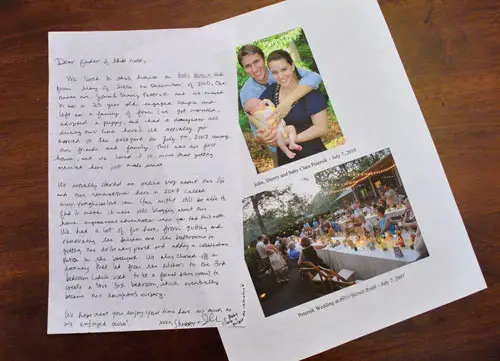 Dear finder of this note,
We lived in this house on
from May of 2006 to December of 2010. Our
names are John & Sherry Petersik and we moved
in as a 25 year old, engaged couple and
left as a family of four (we got married,
adopted a puppy, and had a daughter all
during our time here). We actually got
married in the backyard on July 7th, 2007 among
our friends and family. This was our first
house, and we loved it so much that getting
married here just made sense.
We actually started an online blog about our life
and our renovations here in 2007 called
younghouselove.com. You might still be able to
find it online if we're still blogging about our
home improvement adventures when you find this note.
We had a lot of fun here, from gutting and
renovating the kitchen and the bathrooms to
getting the driveway paved and adding a
patio in the backyard. We also closed off a
doorway that led from the kitchen to the 3rd
bedroom (which used to be a formal dining room) to
create a true 3rd bedroom, which eventually
became our daughter's nursery.
We hope that you enjoy your time here as much as
we enjoyed ours!
Love, Sherry + John
John, Sherry and Baby Clara Petersik - July 7, 2010
Petersik Wedding at Road - July 7, 2007